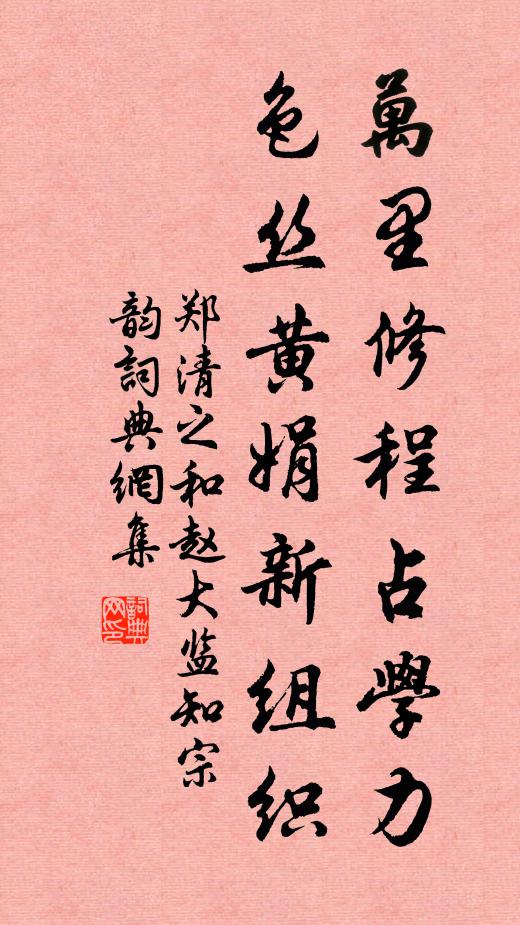 萬里修程占學力
色丝黄娟新组织
郑清之和赵大监知宗
韵詞典網集
詞典
网印